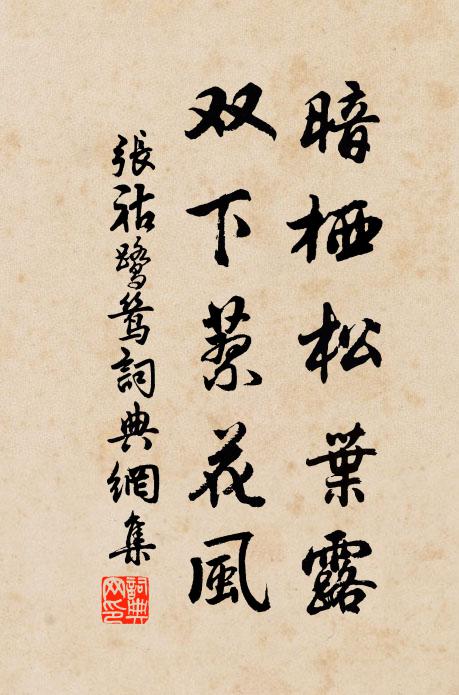 暗栖松葉露
双下蓼花風
張祜鷺鷥詞典網集
詞典网印